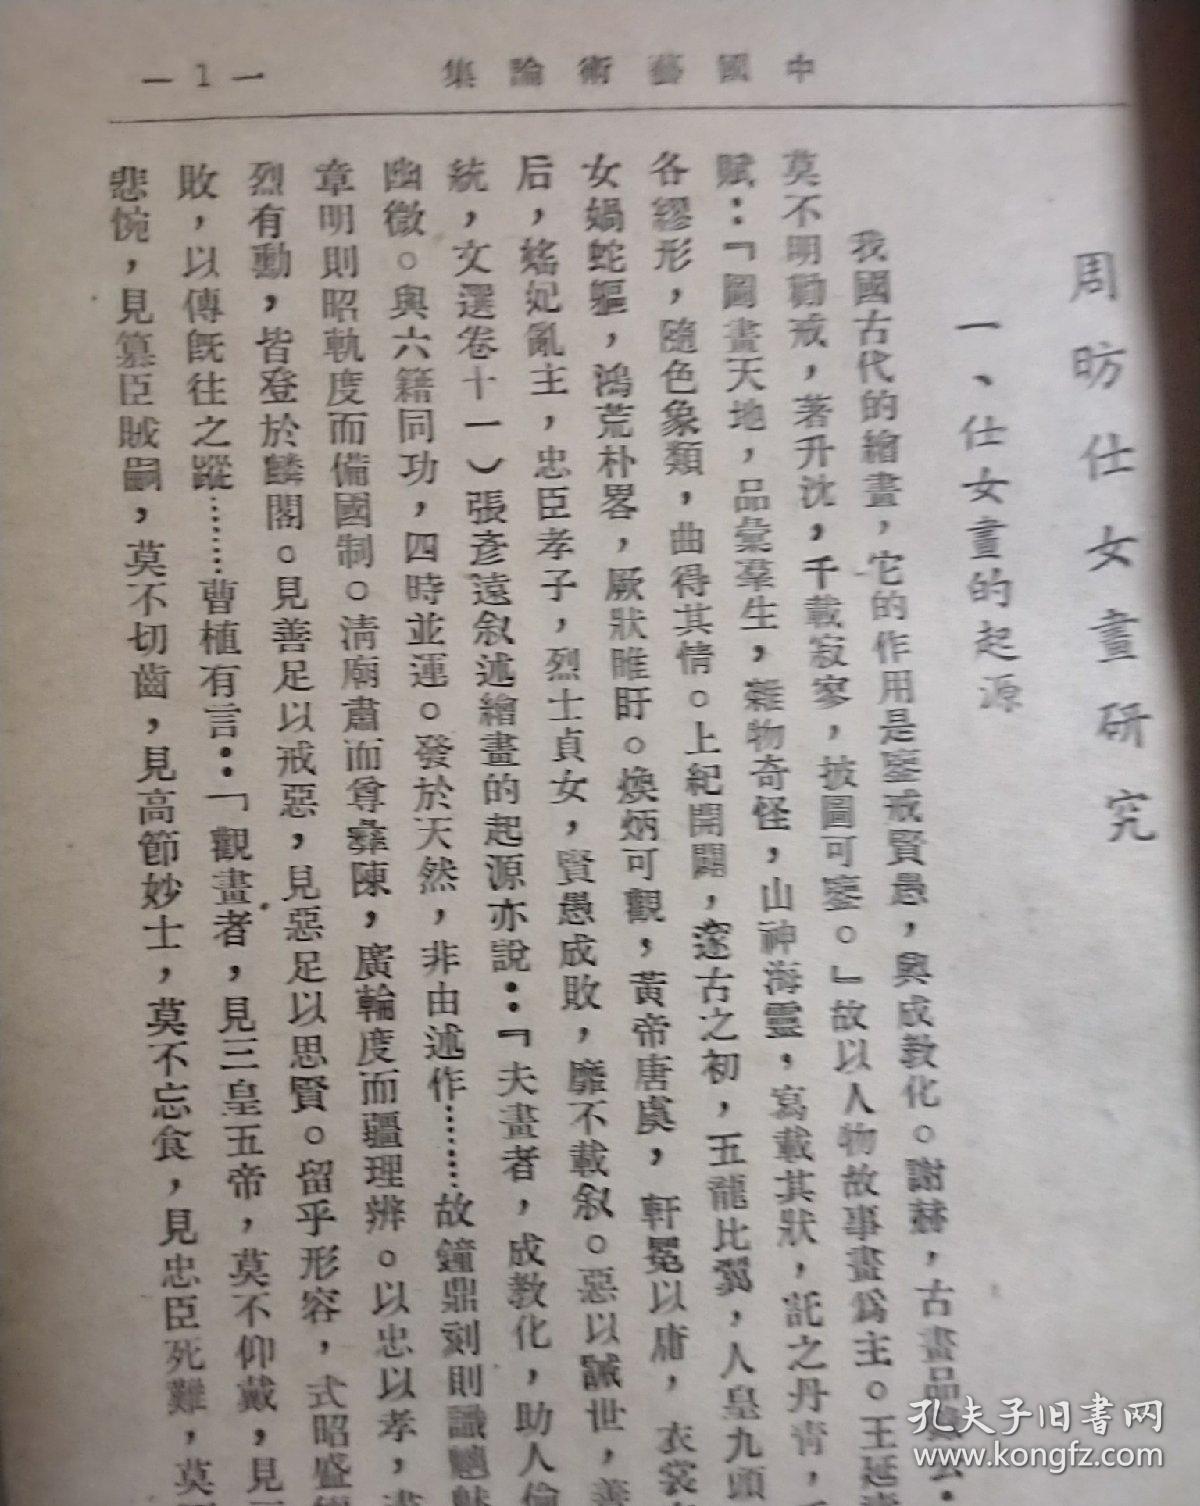 中國藝術論集
— 1 —
周昉仕女畫研究
一、仕女畫的起源
我國古代的繪畫，它的作用是鑒戒賢愚，與成教化。謝赫，古畫品
莫不明勸戒，著升沈，千載寂寥，披圖可鑒。』故以人物故事畫爲主。王延
賦：『圖畫天地，品彙羣生，雜物奇怪，山神海靈，寫載其狀，託之丹青，
各繆形，隨色象類，曲得其情。上紀開闢，邃古之初，五龍比翼，人皇九頭
女媧蛇軀，鴻荒朴畧，厥狀睢盱。煥炳可觀，黃帝唐虞，軒冕以庸，衣裳
后，媱妃亂主，忠臣孝子，烈士貞女，賢愚成敗，靡不載叙。惡以誡世，善
統，文選卷十一）張彥遠叙述繪畫的起源亦說：『夫畫者，成教化，助人倫
幽微。與六籍同功，四時並運。發於天然，非由述作………故鐘鼎刻則識魑魅
章明則昭軌度而備國制。清廟肅而尊彝陳，廣輪度而疆理辨。以忠以孝，
烈有動，皆登於麟閣。見善足以戒惡，見惡足以思賢。留乎形容，式昭盛
敗，以傳旣往之蹤………曹植有言：「觀畫者，見三皇五帝，莫不仰戴，見
悲惋，見篡臣賊嗣，莫不切齒，見高節妙士，莫不忘食，見忠臣死難，莫
孔夫子旧書网
www.kongfz.com